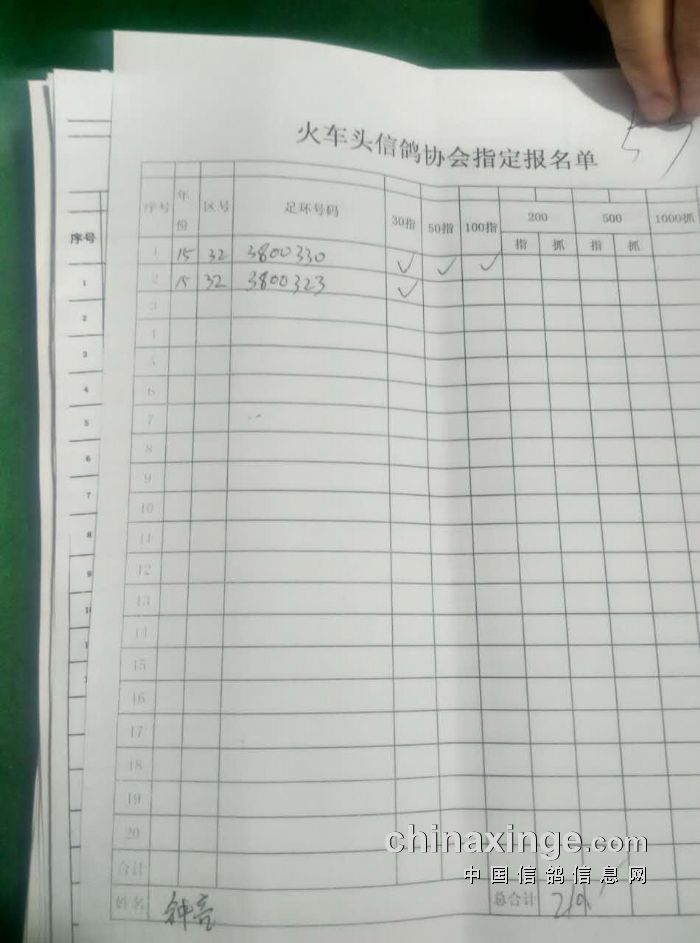 火车头信鸽协会指定报名单
序号 年份 区号 足环号码 30指 50指 100指 200 500 1000抓
指 抓 指 抓
1 15 32 3800330 ✓ ✓ ✓
2 15 32 3800323 ✓
3
4
5
6
7
8
9
10
11
12
13
14
15
16
17
18
19
20
合计
姓名 钟亮 总合计 210
序号
1
2
3
4
5
6
7
8
9
chinaxinge.com
中国信鸽信息网